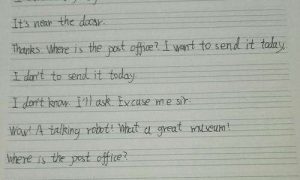 It's near the door.
Thanks. Where is the post office? I want to send it today.
I don't to send it today
I don't know. I'll ask. Excuse me sir.
Wow! A talking robot! What a great museum!
Where is the post office?